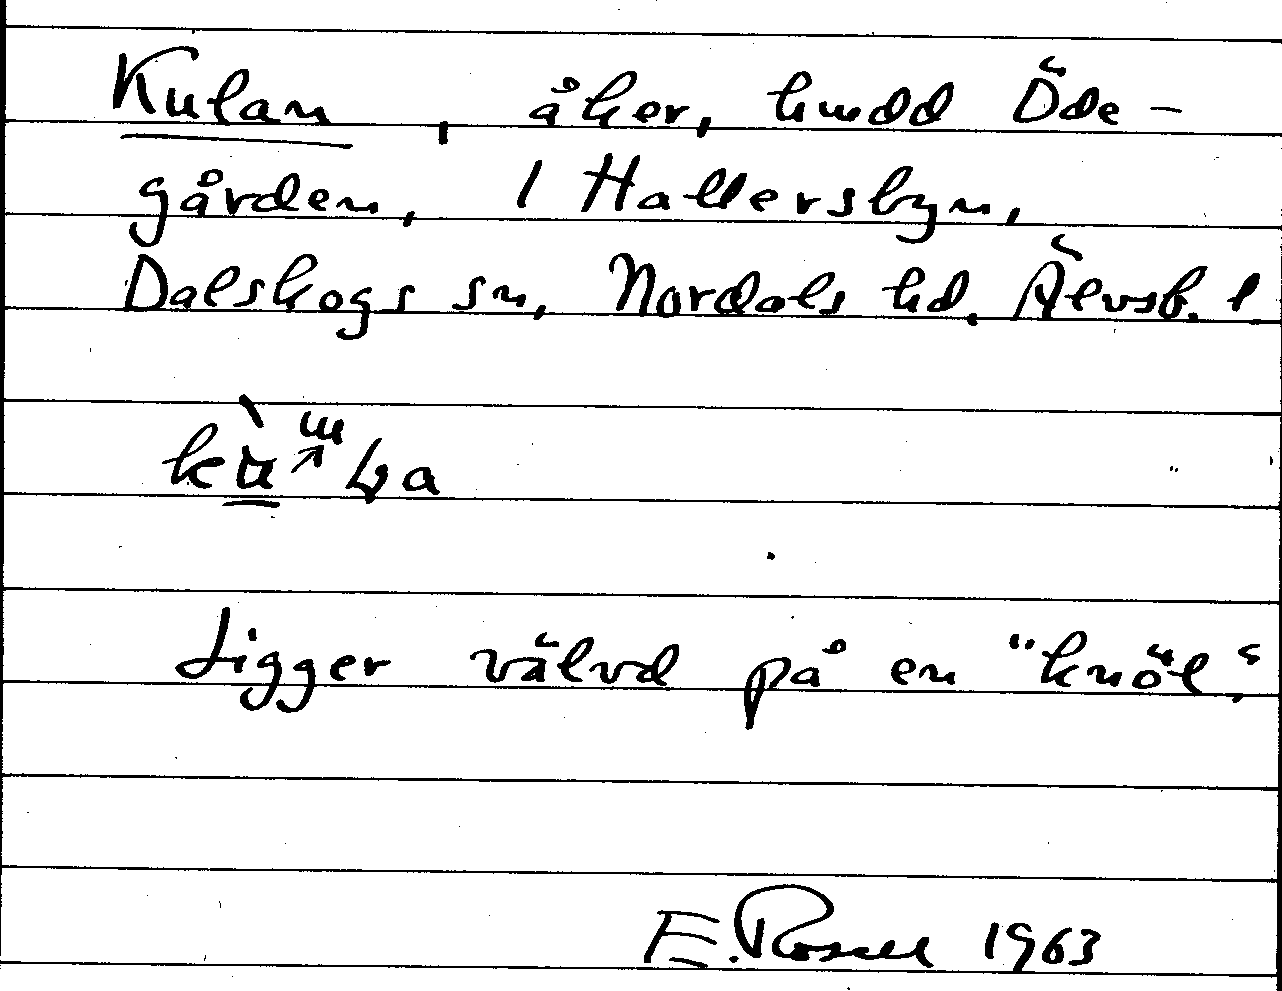 Kulan, åker, hmdd Öde-
gården, 1 Hallersbyn,
Dalskogs sn, Nordals hd. Älvsb. l.
Ligger välvd på en "knöl".
E. Rosell 1963